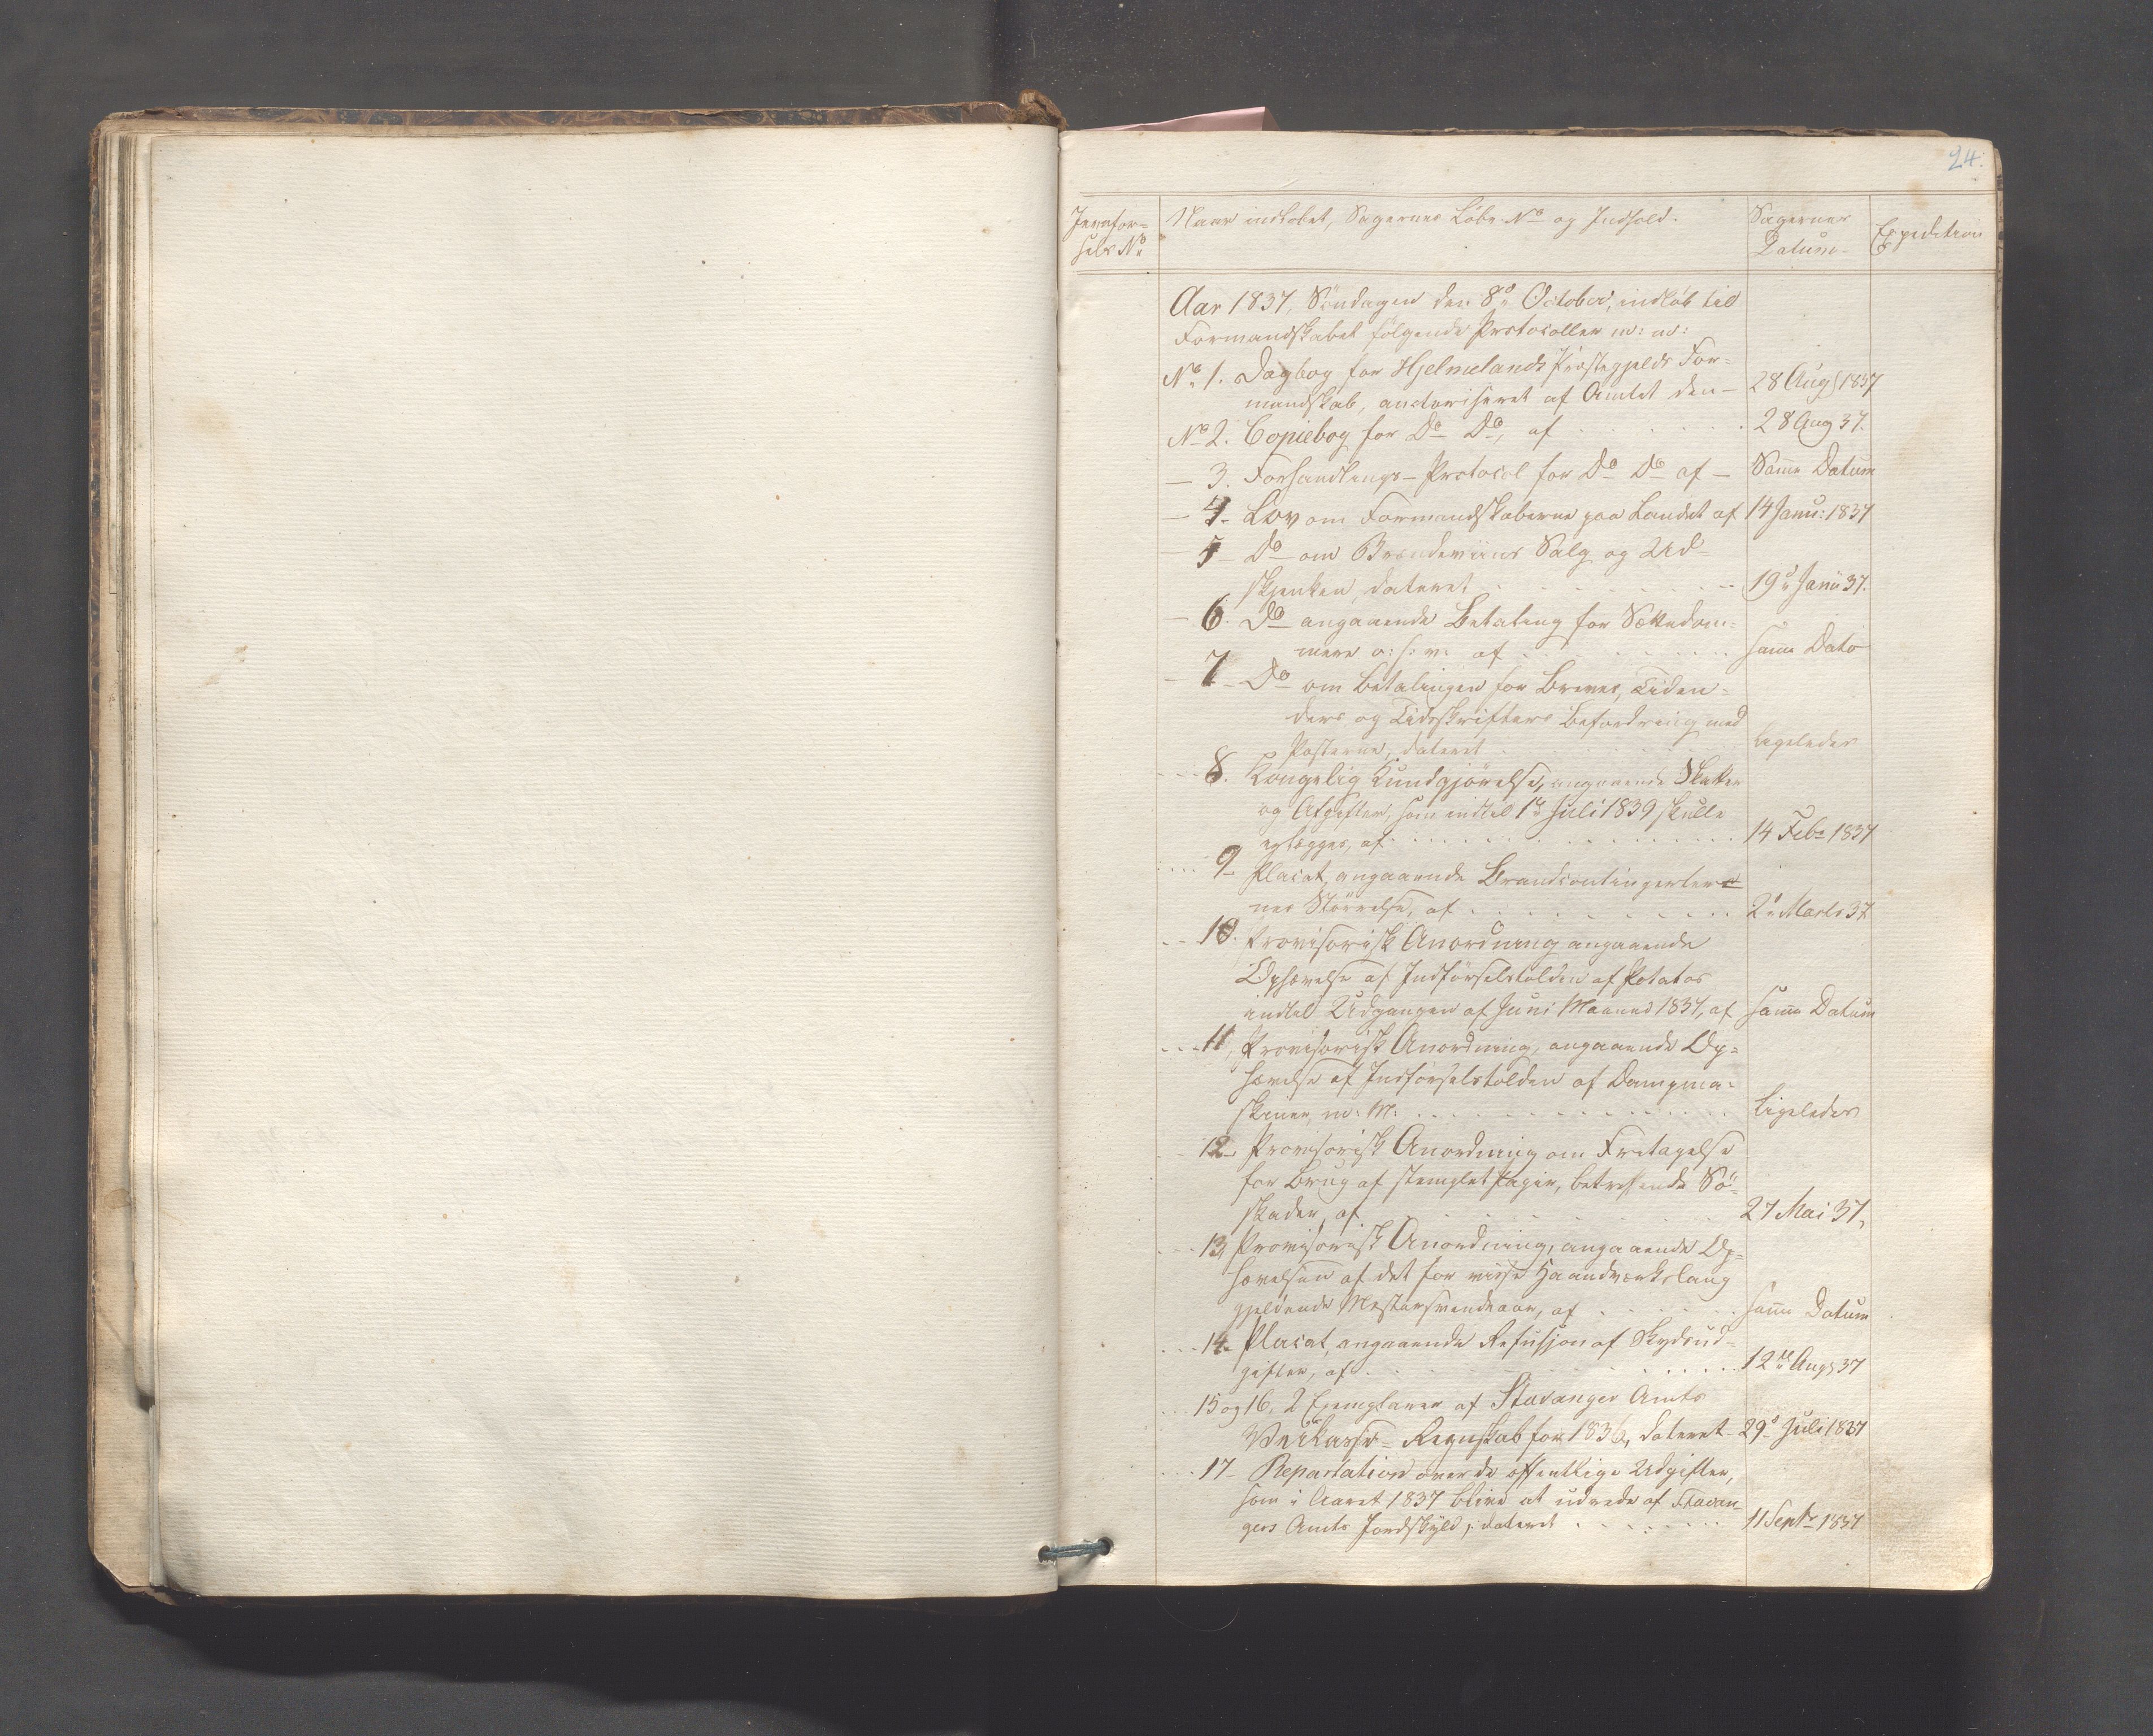 24.
Jevnfør=
sels No
Naar indløbet, Sagernes Løbe No og Indhold.
Sagernes
Datum.
Expedition
Aar 1837, Søndagen den 8de October, indløb til
Formandskabet følgende Protocoller m: m:
No 1. Dagbog for Hjelmelands Præstegjelds For=
mandskab, auctoriseret af Amtet den — 28 Aug 1837
No 2. Copiebog for Do Do, af . . . . . . 28 Aug 37.
— 3. Forhandlings-Protocol for Do Do af — Samme Datum
— 4. Lov om Formandskaberne paa Landet af 14 Janu: 1837
— 5 Do om Brændeviins Salg og Ud=
skjenken, dateret . . . . . . 19de Janu 37.
— 6. Do angaaende Betaling for Sættedom=
mere o: s: v: af . . . . . . samme Dato
— 7 Do om Betalingen for Breves, Tiden=
ders og Tidsskrifters Befordring med
Posterne, dateret . . . . . . ligeledes
8. Kongelig Kundgjørelse, angaaende Skatter
og Afgifter, som indtil 1ste Juli 1839 skulle
erlægges, af . . . . . . 14 Febr 1837
9 Placat, angaaende Brandcontingenter
nes Størrelse, af . . . . . . 2de Marts 37
10. Provisorisk Anordning angaaende
Ophævelse af Indførselstolden af Potatos
indtil Udgangen af Juni Maaned 1837, af samme Datum
11, Provisorisk Anordning, angaaende Op=
hævelse af Indførselstolden af Dampma=
skiner, m: M: . . . . . . ligeledes
12 Provisorisk Anordning om Fritagelse
for Brug af stemplet Papir, betreffende Sö=
skader, af . . . . . . 27 Mai 37,
13, Provisorisk Anordning, angaaende Op=
hævelsen af det for visse Haandværkslaug
gjeldende Mestersvendeaar, af . . . . . . samme Datum
14. Placat, angaaende Refusjon af Skydsud=
gifter, af . . . . . . 12te Aug 37
15 og 16, 2 Exemplarer af Stavanger Amts
Veikasse=Regnskab for 1836, dateret 29de Juli 1837
17 Repartation over de offentlige Udgifter,
som i Aaret 1837 blive at udrede af Stavan=
gers Amts Jordskyld, dateret . . . . . . 11 Septr 1837